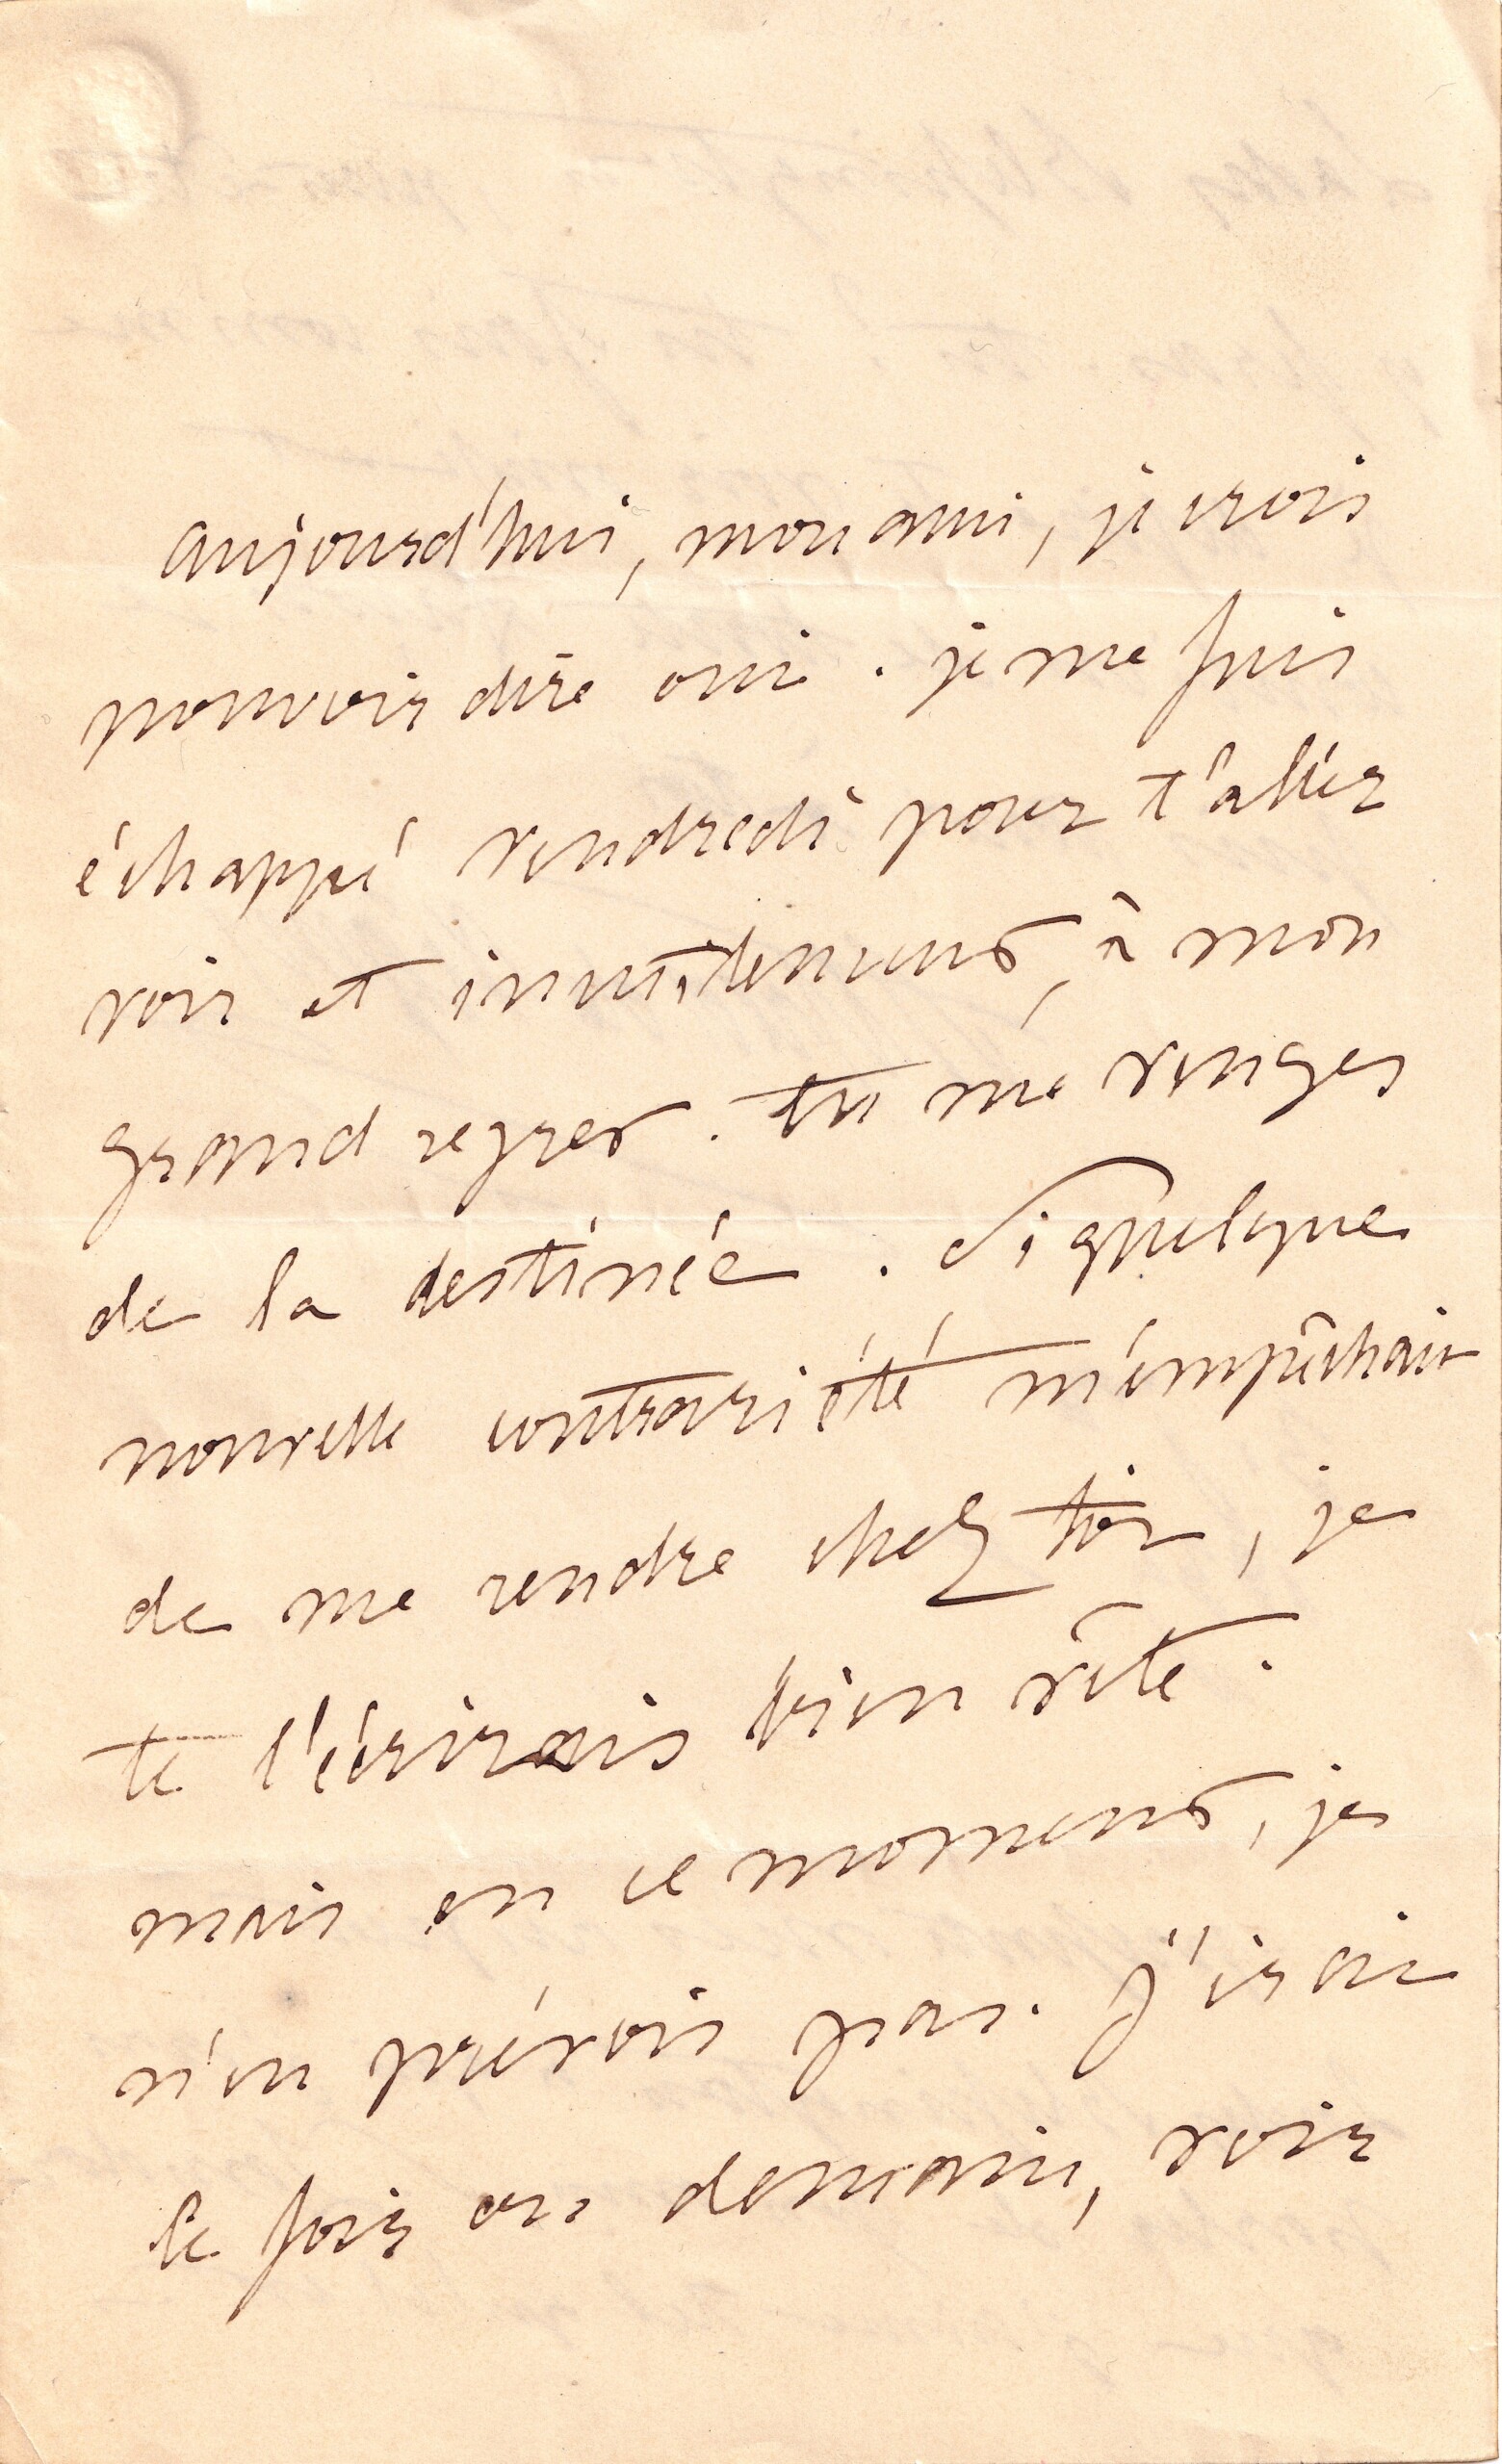 aujourd'hui, mon ami, je crois
pouvoir dire oui. je me suis
échappé vendredi pour t'aller
voir et inutilement, à mon
grand regret. tu me venges
de la destinée. Si quelque
nouvelle contrariété m'empêchait
de me rendre chez toi, je
te l'écrirais bien vite.
mais en ce moment, je
n'en prévois pas. J'irai
ce soir ou demain, voir